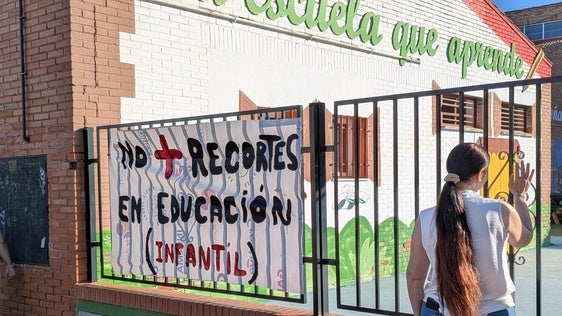 escuela que aprende
NO + RECORTES
EN EDUCACIÓN
(INFANTIL)